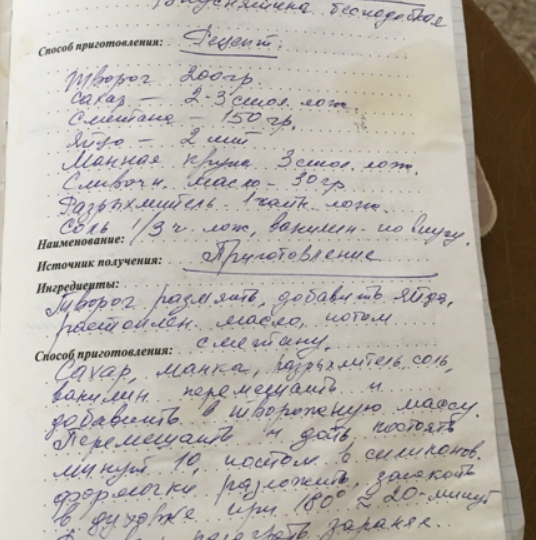 Вкуснятина бесподобная
Способ приготовления: Рецепт:
Творог 200 гр
Сахар — 2-3 стол. лож.
Сметана — 150 гр.
Яйцо — 2 шт
Манная крупа 3 стол. лож.
Сливочн. масло — 30 гр
Разрыхлитель 1 чайн. лож.
Соль 1/3 ч. лож, ванилин по вкусу.
Наименование:
Источник получения: Приготовление
Ингредиенты:
Творог размять, добавить яйца,
растоплен. масло, потом
Способ приготовления: сметану.
Сахар, манка, разрыхлитель, соль,
ванилин перемешать и
добавить в творожную массу.
Перемешать и дать постоять
минут 10, потом в силиконов.
формочки разложить, запекать
в духовке при 180° ≈ 20 минут
заранее.